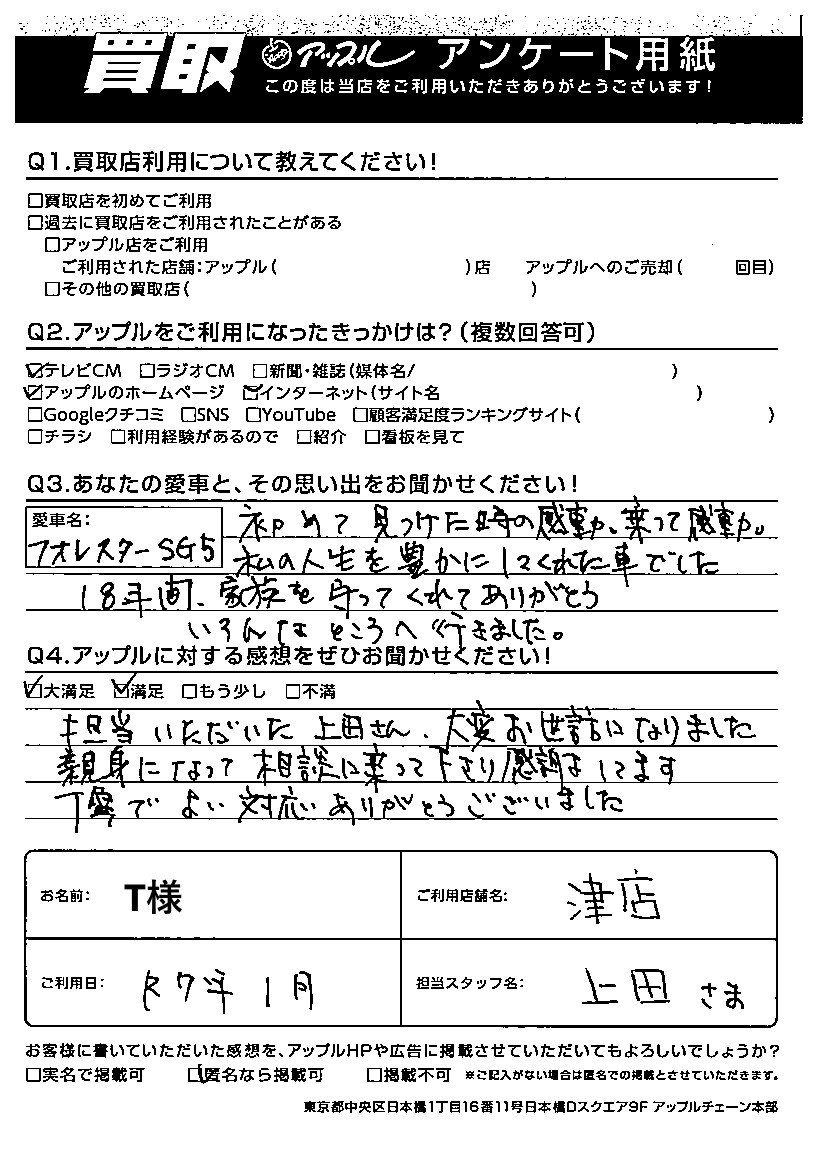 買取 アップル アンケート用紙
この度は当店をご利用いただきありがとうございます!
Q1.買取店利用について教えてください!
□買取店を初めてご利用
□過去に買取店をご利用されたことがある
□アップル店をご利用
ご利用された店舗:アップル( )店 アップルへのご売却( 回目)
□その他の買取店( )
Q2.アップルをご利用になったきっかけは?(複数回答可)
☑テレビCM □ラジオCM □新聞・雑誌(媒体名/ )
☑アップルのホームページ ☑インターネット(サイト名 )
□Googleクチコミ □SNS □YouTube □顧客満足度ランキングサイト( )
□チラシ □利用経験があるので □紹介 □看板を見て
Q3.あなたの愛車と、その思い出をお聞かせください!
愛車名:
フオレスターSG5
初めて見つけた時の感動。乗って感動。
私の人生を豊かにしてくれた車でした
18年間、家族を守ってくれてありがとう
いろんなところへ行きました。
Q4.アップルに対する感想をぜひお聞かせください!
☑大満足 ☑満足 □もう少し □不満
担当いただいた上田さん、大変お世話になりました
親身になって相談に乗って下さり感謝してます
丁寧でよい対応ありがとうございました
お名前: T様 ご利用店舗名: 津店
ご利用日: R7年1月 担当スタッフ名: 上田さま
お客様に書いていただいた感想を、アップルHPや広告に掲載させていただいてもよろしいでしょうか?
□実名で掲載可 ☑匿名なら掲載可 □掲載不可 ※ご記入がない場合は匿名での掲載とさせていただきます。
東京都中央区日本橋1丁目16番11号日本橋Dスクエア9F アップルチェーン本部